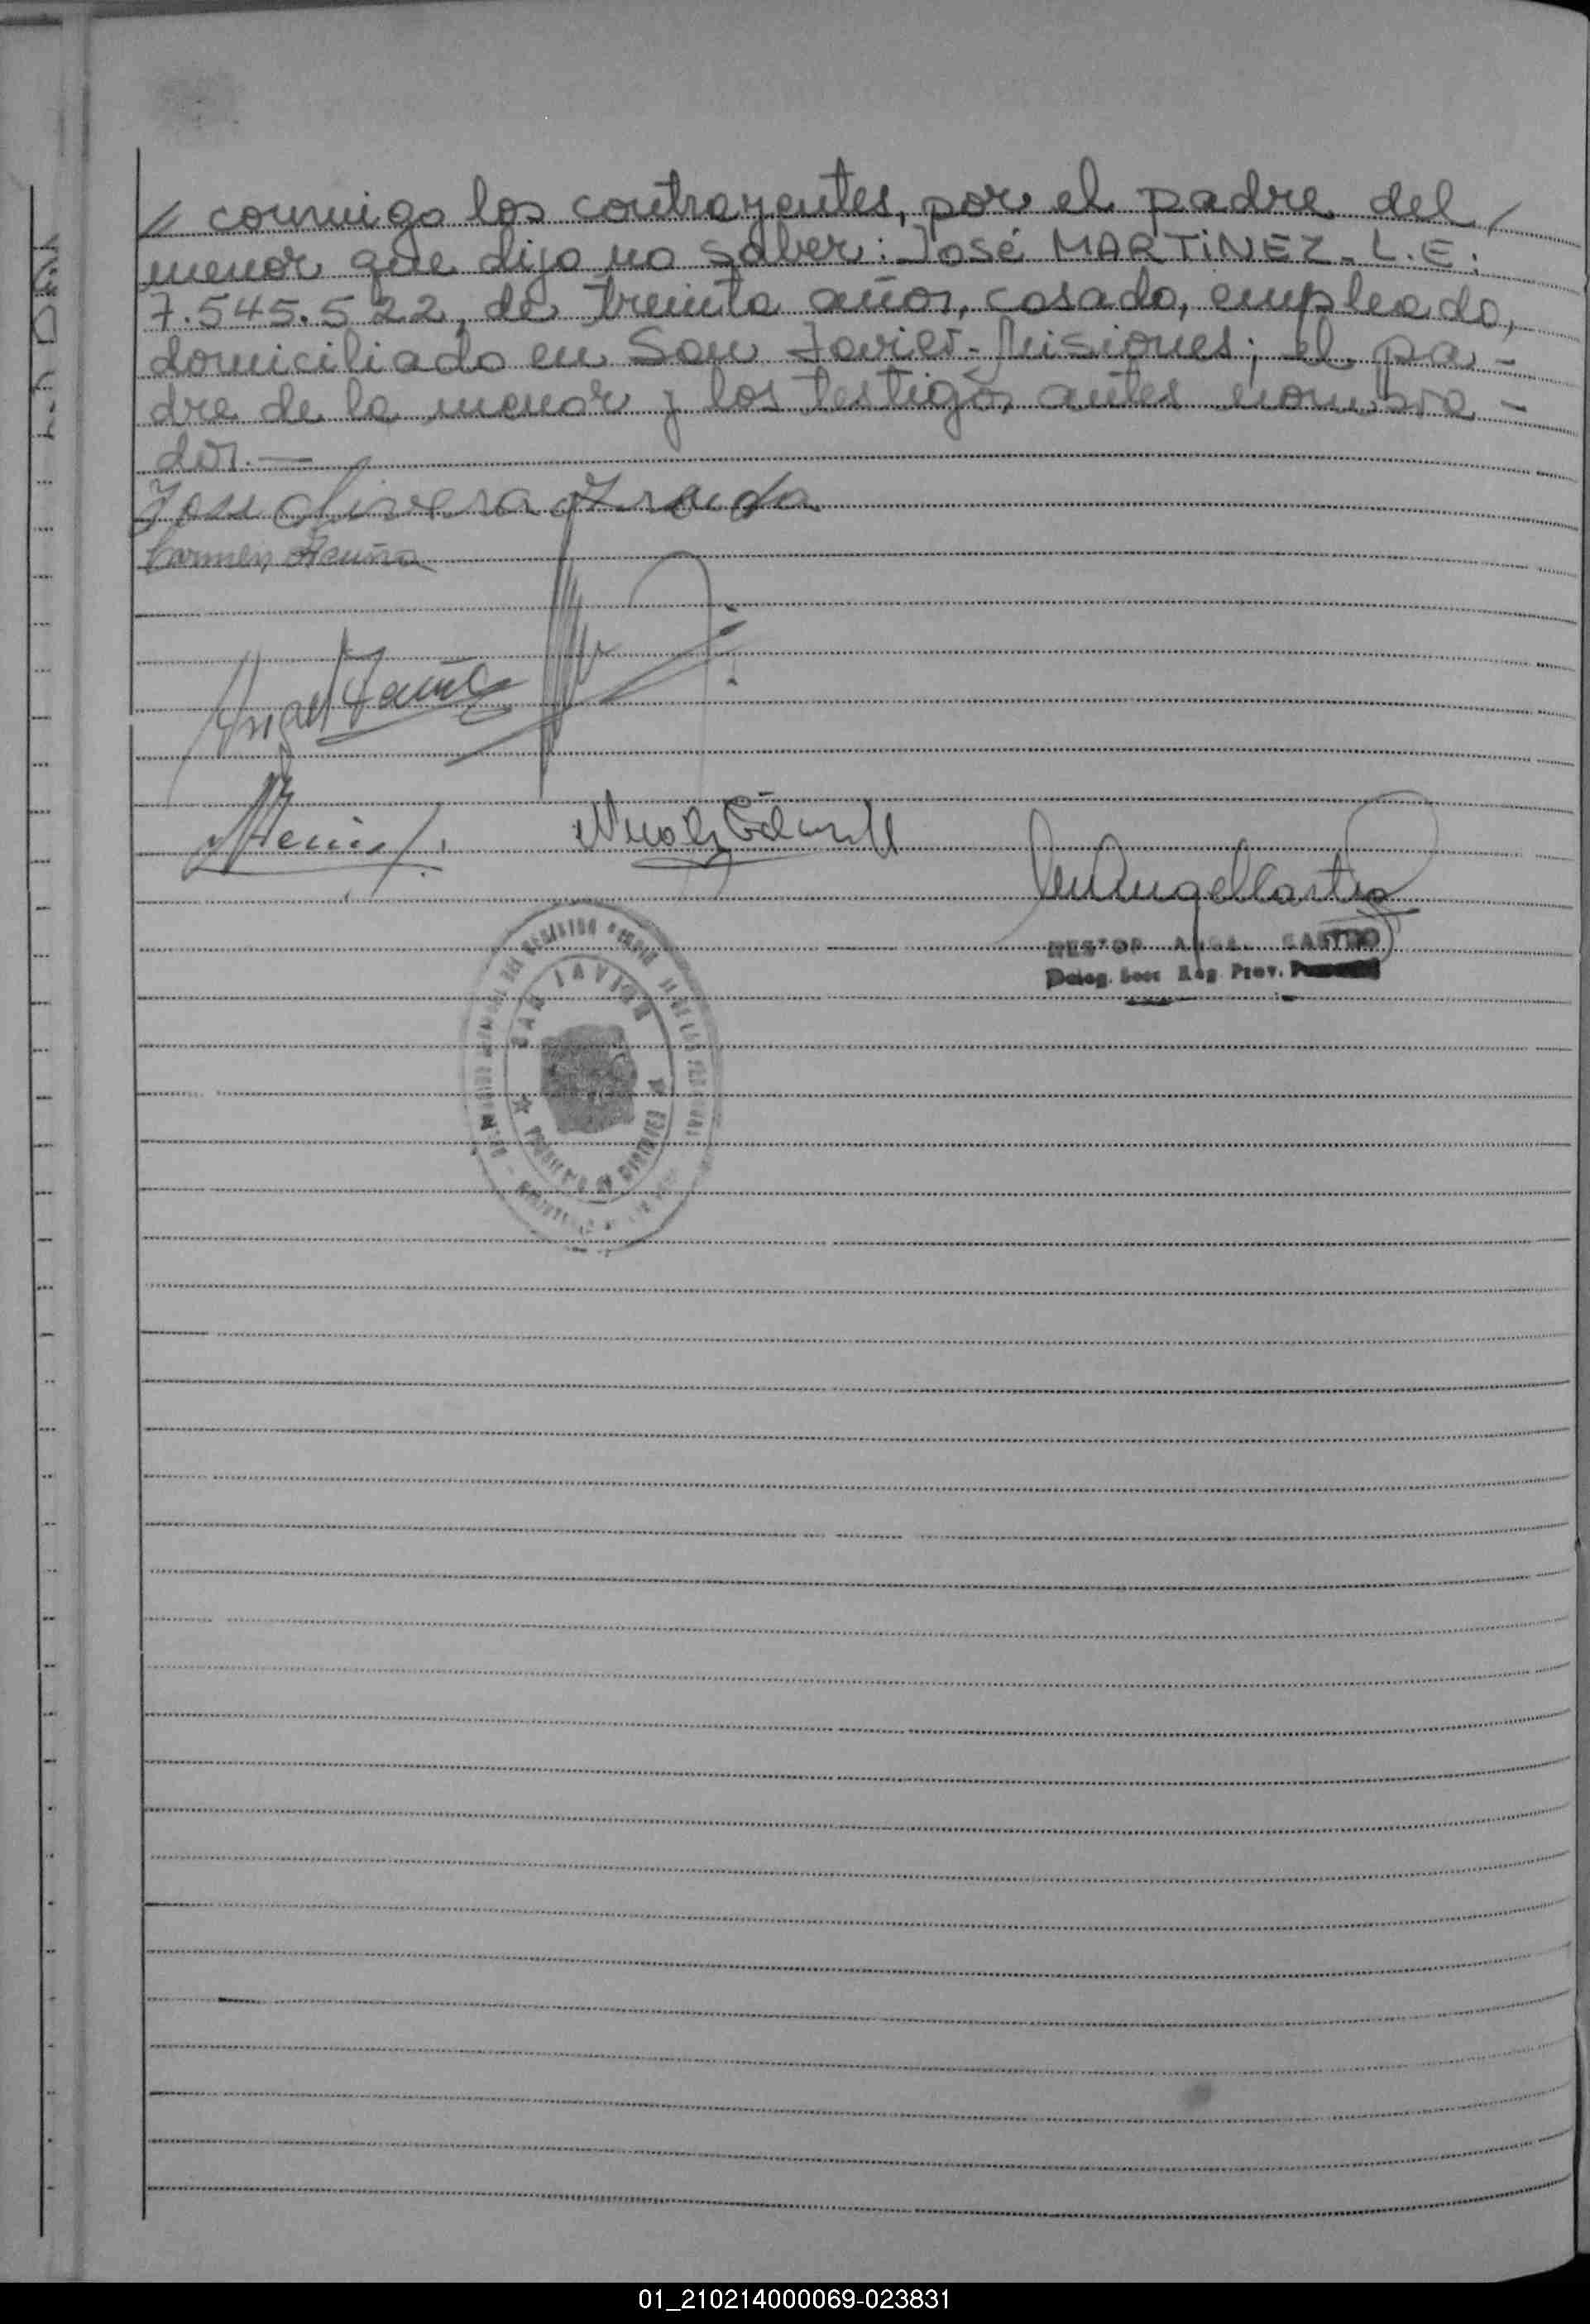 // conmigo los contrayentes, por el padre del /
menor que dijo no saber: José MARTiNEZ - L.E:
7.545.522, de treinta años, casado, empleado,
domiciliado en San Javier - Misiones; el pa -
dre de la menor y los testigos antes nombra -
dos. —
Jose Olivera
Carmen Acuña
Angel Acuña
NESTOR ANGEL CASTRO
Deleg. Locl Reg. Prov.
SAN JAVIER
PROVINCIA DE MISIONES
01_210214000069-023831